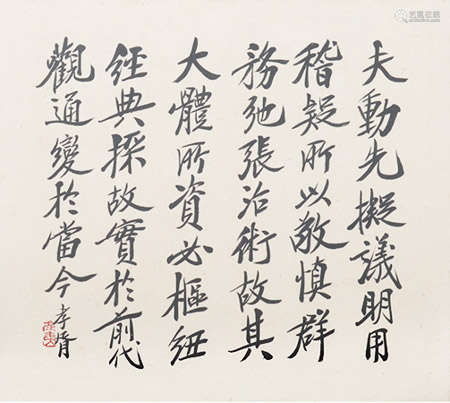 夫動先擬議明用
稽疑所以敬慎群
務弛張治術故其
大體所資必樞紐
經典採故實於前代
觀通變於當今
孝胥